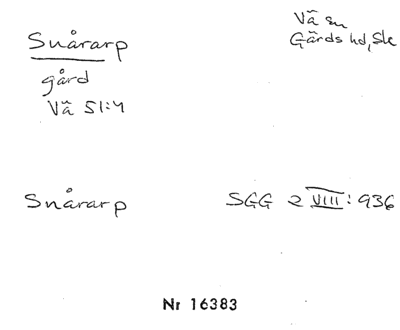 Snårarp
Vä sn
Gärds hd, Sk
gård
Vä 51:4
Snårarp
SGG 2 VIII: 936
Nr 16383